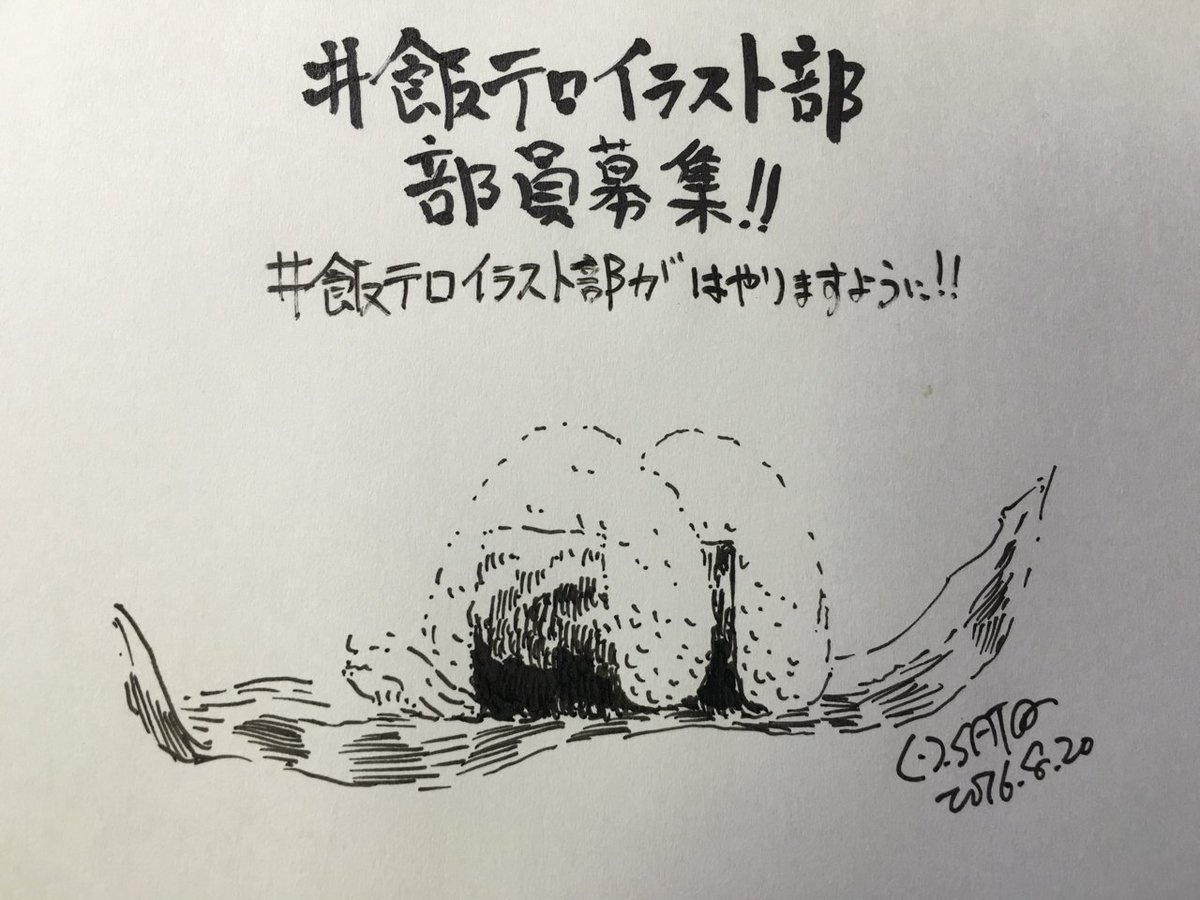 #飯テロイラスト部
部員募集!!
#飯テロイラスト部がはやりますように!!
SATO
2016.8.20